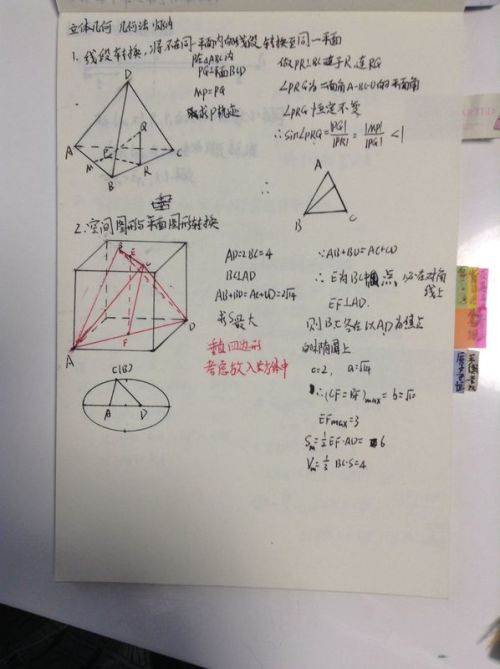 立体几何 几何法
1. 线段转换,将不在同一平面内的线段转换至同一平面
P在△ABC内
PQ⊥平面BCD
MP=PQ
求P轨迹
做PR⊥BC交于R,连RQ
∠PRQ为二面角A-BC-D的平面角
∠PRQ恒定不变
∴sin∠PRQ=|PQ|/|PR|=|MP|/|PR|<1
D
Q
A
M
P
C
B
R
∴
A
B
C
2. 空间图形与平面图形转换
AD=2BC=4
BC⊥AD
AB+BD=AC+CD=2√14
求S最大
垂直四边形
考虑放入长方体中
∵AB+BD=AC+CD
∴E为BC中点,必在对角线上
EF⊥AD.
则B、C落在以A、D为焦点
的椭圆上
c=2, a=√14
∴(CF=BF)max=b=√10
EFmax=3
Sm=½EF·AD=6
Vm=⅓BC·S=4
B
E
C
F
D
A
C(B)
A
D